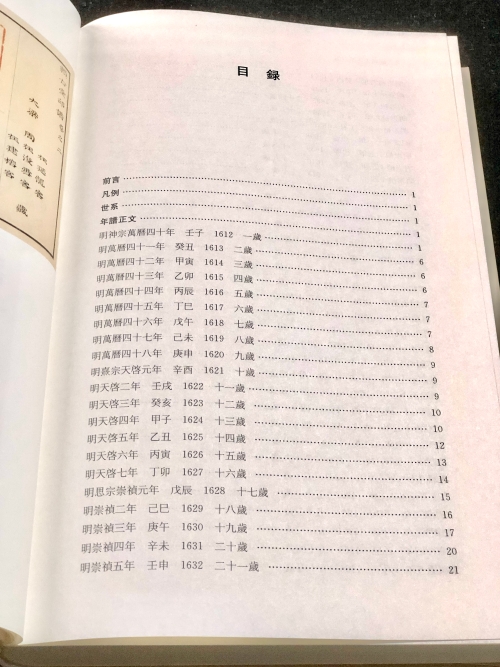 大梁
目録
前言 …… 1
凡例 …… 1
世系 …… 1
年譜正文 …… 1
明神宗萬曆四十年 壬子 1612 一歲 …… 1
明萬曆四十一年 癸丑 1613 二歲 …… 6
明萬曆四十二年 甲寅 1614 三歲 …… 6
明萬曆四十三年 乙卯 1615 四歲 …… 6
明萬曆四十四年 丙辰 1616 五歲 …… 7
明萬曆四十五年 丁巳 1617 六歲 …… 7
明萬曆四十六年 戊午 1618 七歲 …… 7
明萬曆四十七年 己未 1619 八歲 …… 8
明萬曆四十八年 庚申 1620 九歲 …… 9
明熹宗天啓元年 辛酉 1621 十歲 …… 9
明天啓二年 壬戌 1622 十一歲 …… 9
明天啓三年 癸亥 1623 十二歲 …… 10
明天啓四年 甲子 1624 十三歲 …… 10
明天啓五年 乙丑 1625 十四歲 …… 12
明天啓六年 丙寅 1626 十五歲 …… 13
明天啓七年 丁卯 1627 十六歲 …… 14
明思宗崇禎元年 戊辰 1628 十七歲 …… 15
明崇禎二年 己巳 1629 十八歲 …… 16
明崇禎三年 庚午 1630 十九歲 …… 17
明崇禎四年 辛未 1631 二十歲 …… 20
明崇禎五年 壬申 1632 二十一歲 …… 21